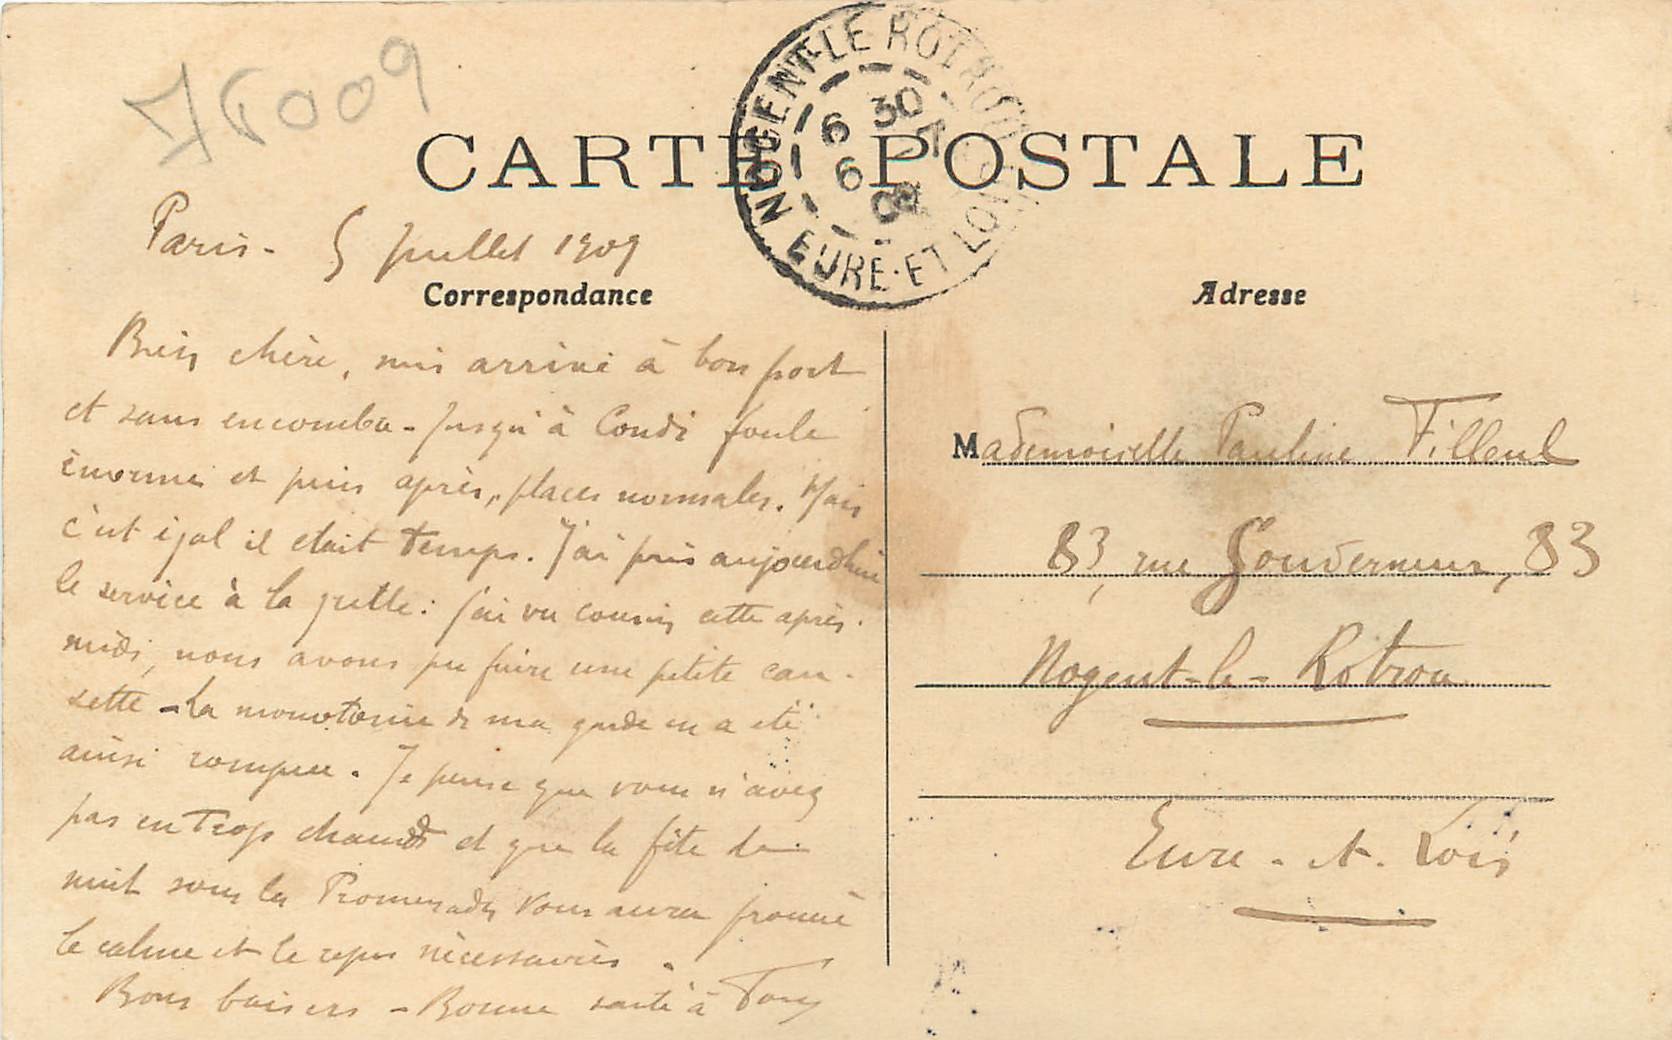 76009
CARTE POSTALE
NOGENT-LE ROTROU
6 30
6 7
09
EURE-ET-LOIR
Paris - 5 Juillet 1909
Correspondance
Adresse
Bien chère, suis arrivé à bon port
et sans encombre - Jusqu'à Condé foule
énorme et puis après, places normales. Mais
c'est égal il était temps. J'ai pris aujourd'hui
le service à la grille : j'ai vu cousin cette après-
midi, nous avons pu faire une petite cau-
sette - La monotonie de ma garde en a été
ainsi rompue. Je pense que vous n'avez
pas eu trop chaud et que la fête de
nuit sous les Promenades vous aura procuré
le calme et le repos nécessaires.
Bons baisers - Bonne santé à Tous
Mademoiselle Pauline Filleul
83, rue Gouverneur, 83
Nogent-le-Rotrou
Eure-et-Loir